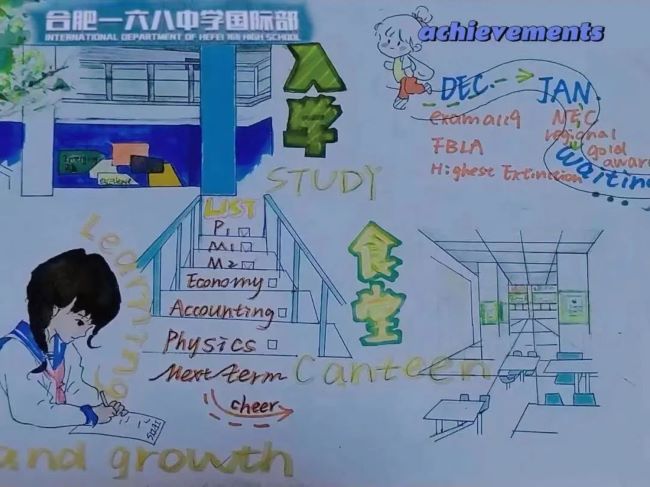 合肥一六八中学国际部
INTERNATIONAL DEPARTMENT OF HEFEI 168 HIGH SCHOOL
入学
STUDY
achievements
DEC.
JAN.
FBLA
Highest Extinction
NEC
regional
gold
award
Waiting
...
LIST
P1
M1
M2
Economy
Accounting
Physics
Next term
cheer
食堂
Canteen
Learning
and growth